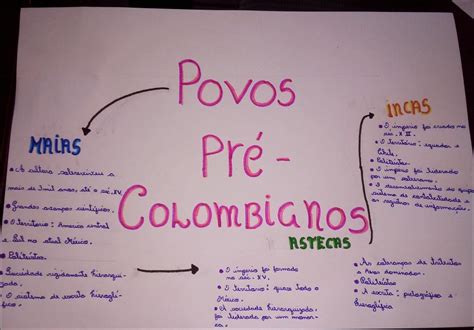 Povos
Pré-
Colombianos
MAIAS
• A cultura sobreviveu a
mais de dois anos, até o séc. XV.
• Grandes avanços científicos.
• O território: América central
e Sul no atual México.
• Politeístas.
• Sociedade rigidamente hierarqui-
zada.
• O sistema de escrita hieroglí-
fico.
ASTECAS
• O império foi formado
no séc. XV.
• O território: quase todo o
México.
• A sociedade hierarquizada
foi liderada por um monar-
ca.
• As cobranças de tributos
a povos dominados.
• Politeístas
• A escrita: pictográfica e
hieroglífica
INCAS
• O império foi criado no
séc. X II.
• O território: equador e
Chile.
• Politeístas.
• O império foi liderado
por um soberano.
• O desenvolvimento de um
sistema de contabilidade e
registros de informações.